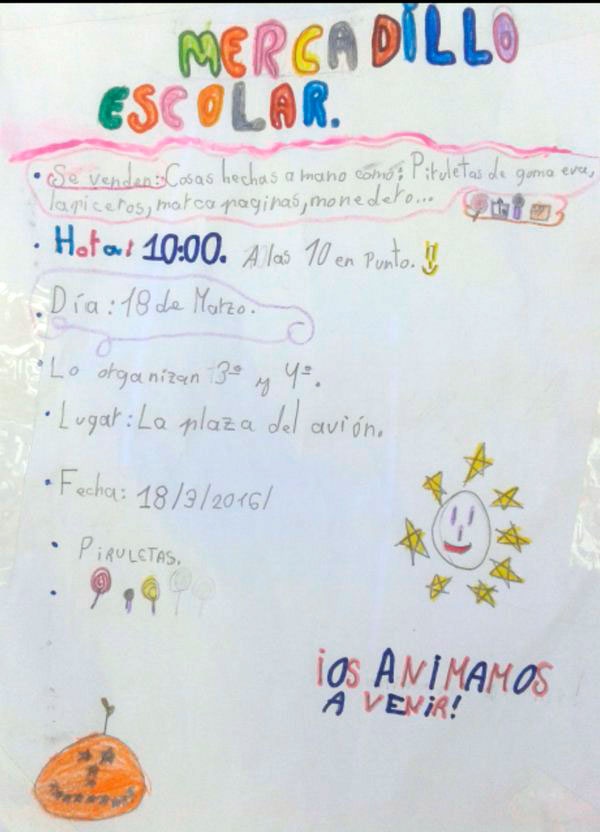 MERCADILLO
ESCOLAR.
• Se venden: Cosas hechas a mano como: Piruletas de goma eva,
lapiceros, marca paginas, monedero...
• Hora: 10:00. A las 10 en punto.
• Día: 18 de Marzo.
• Lo organizan 3º y 4º.
• Lugar: La plaza del avión.
• Fecha: 18/3/2016/
• PiRULETAS.
•
¡OS ANiMAMOS
A VENiR!